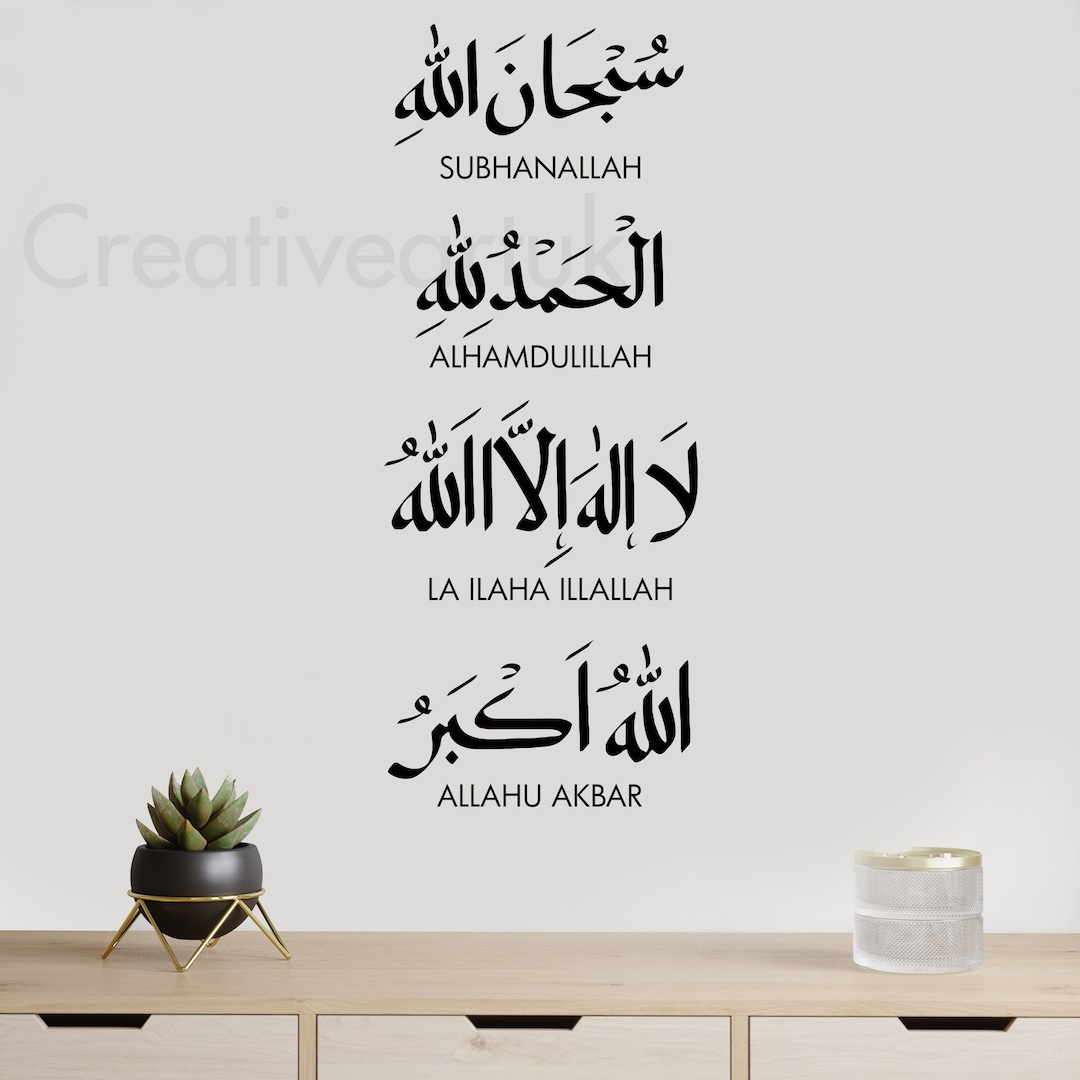 سُبْحَانَ اللّٰهِ
SUBHANALLAH
Creativeartuk
الْحَمْدُ لِلّٰهِ
ALHAMDULILLAH
لَا إِلٰهَ إِلَّا اللّٰهُ
LA ILAHA ILLALLAH
اللّٰهُ اَكْبَرُ
ALLAHU AKBAR